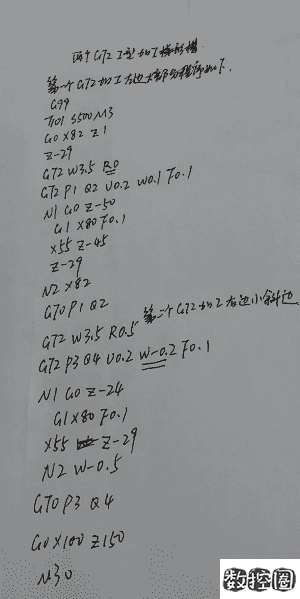 两个G72 I型加工梯形槽
第一个G72加工左边大部分程序如下.
G99
T101 S500 M3
G0 X82 Z1
Z-29
G72 W3.5 R0
G72 P1 Q2 U0.2 W0.1 F0.1
N1 G0 Z-50
G1 X80 F0.1
X55 Z-45
Z-29
N2 X82
G70 P1 Q2
G72 W3.5 R0.5 第二个G72加工右边小斜边
G72 P3 Q4 U0.2 W-0.2 F0.1
N1 G0 Z-24
G1 X80 F0.1
X55 Z-29
N2 W-0.5
G70 P3 Q4
G0 X100 Z150
M30
数控圈